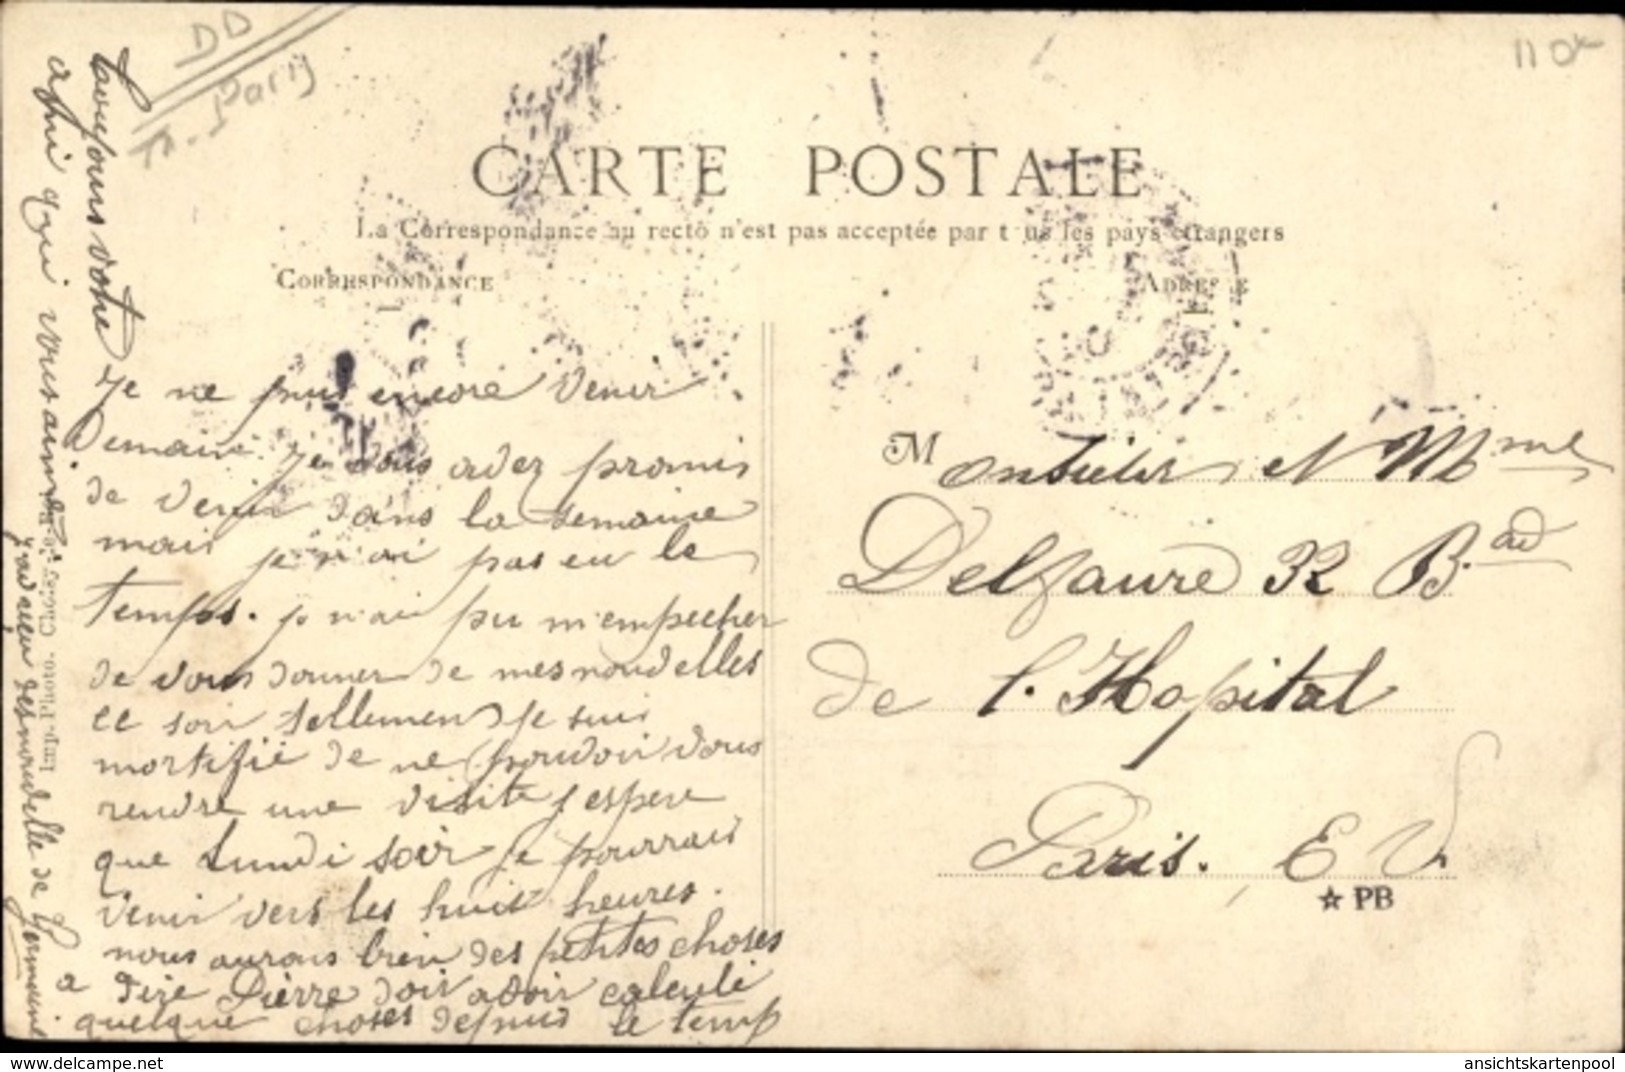 DD
Paris
11 Dk
CARTE POSTALE
La Correspondance au recto n'est pas acceptée par tous les pays étrangers
CORRESPONDANCE
ADRESSE
Je ne puis encore venir
Demain. Je vous avez promis
de venir dans la semaine
mais je n'ai pas eu le
temps. je n'ai pu m'empecher
de vous donner de mes nouvelles
ce soir sellement je suis
mortifié de ne pouvoir vous
rendre une visite j'espere
que Lundi soir je pourrais
venir vers les huit heures.
nous aurons bien des petites choses
a dire Pierre doit avoir calculé
quelque choses depuis le temp
Toujours votre
ami qui vous aime
j'ai reçu des nouvelle de Germaine
Imp. Photo.
Monsieur et Mme
Delzaure 32 B.ad
de l'Hopital
Paris. E V
☆ PB
delcampe.net
ansichtskartenpool